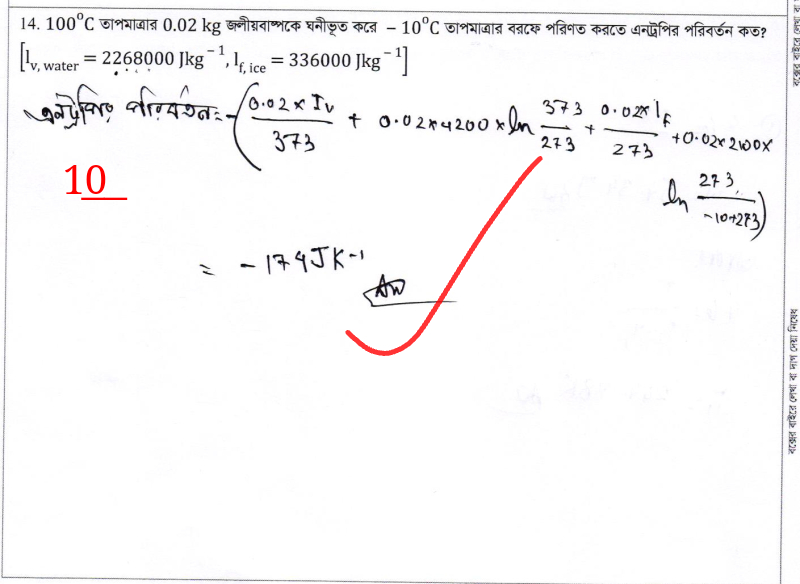 14. 100°C তাপমাত্রার 0.02 kg জলীয়বাষ্পকে ঘনীভূত করে – 10°C তাপমাত্রার বরফে পরিণত করতে এনট্রপির পরিবর্তন কত?
[l_v, water = 2268000 Jkg⁻¹, l_f, ice = 336000 Jkg⁻¹]
এনট্রপির পরিবর্তন = -(0.02 × I_v / 373 + 0.02×4200×ln 373/273 + 0.02×l_f / 273 + 0.02×2100×
ln 273 / -10+273)
10
= -174 JK⁻¹
Ans
বক্সের বাইরে লেখা বা দাগ দেয়া নিষেধ